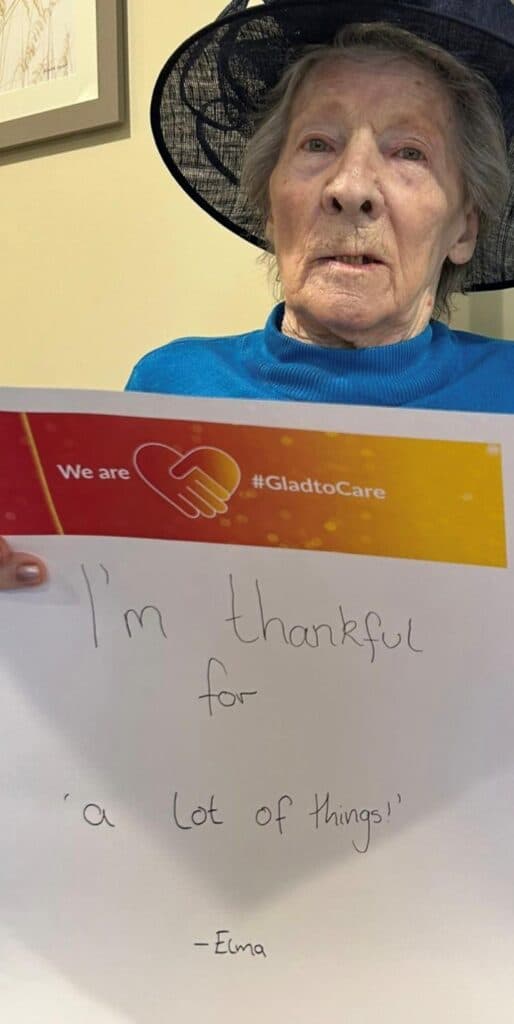 We are #GladtoCare
I'm thankful
for
'a lot of things!'
- Elma